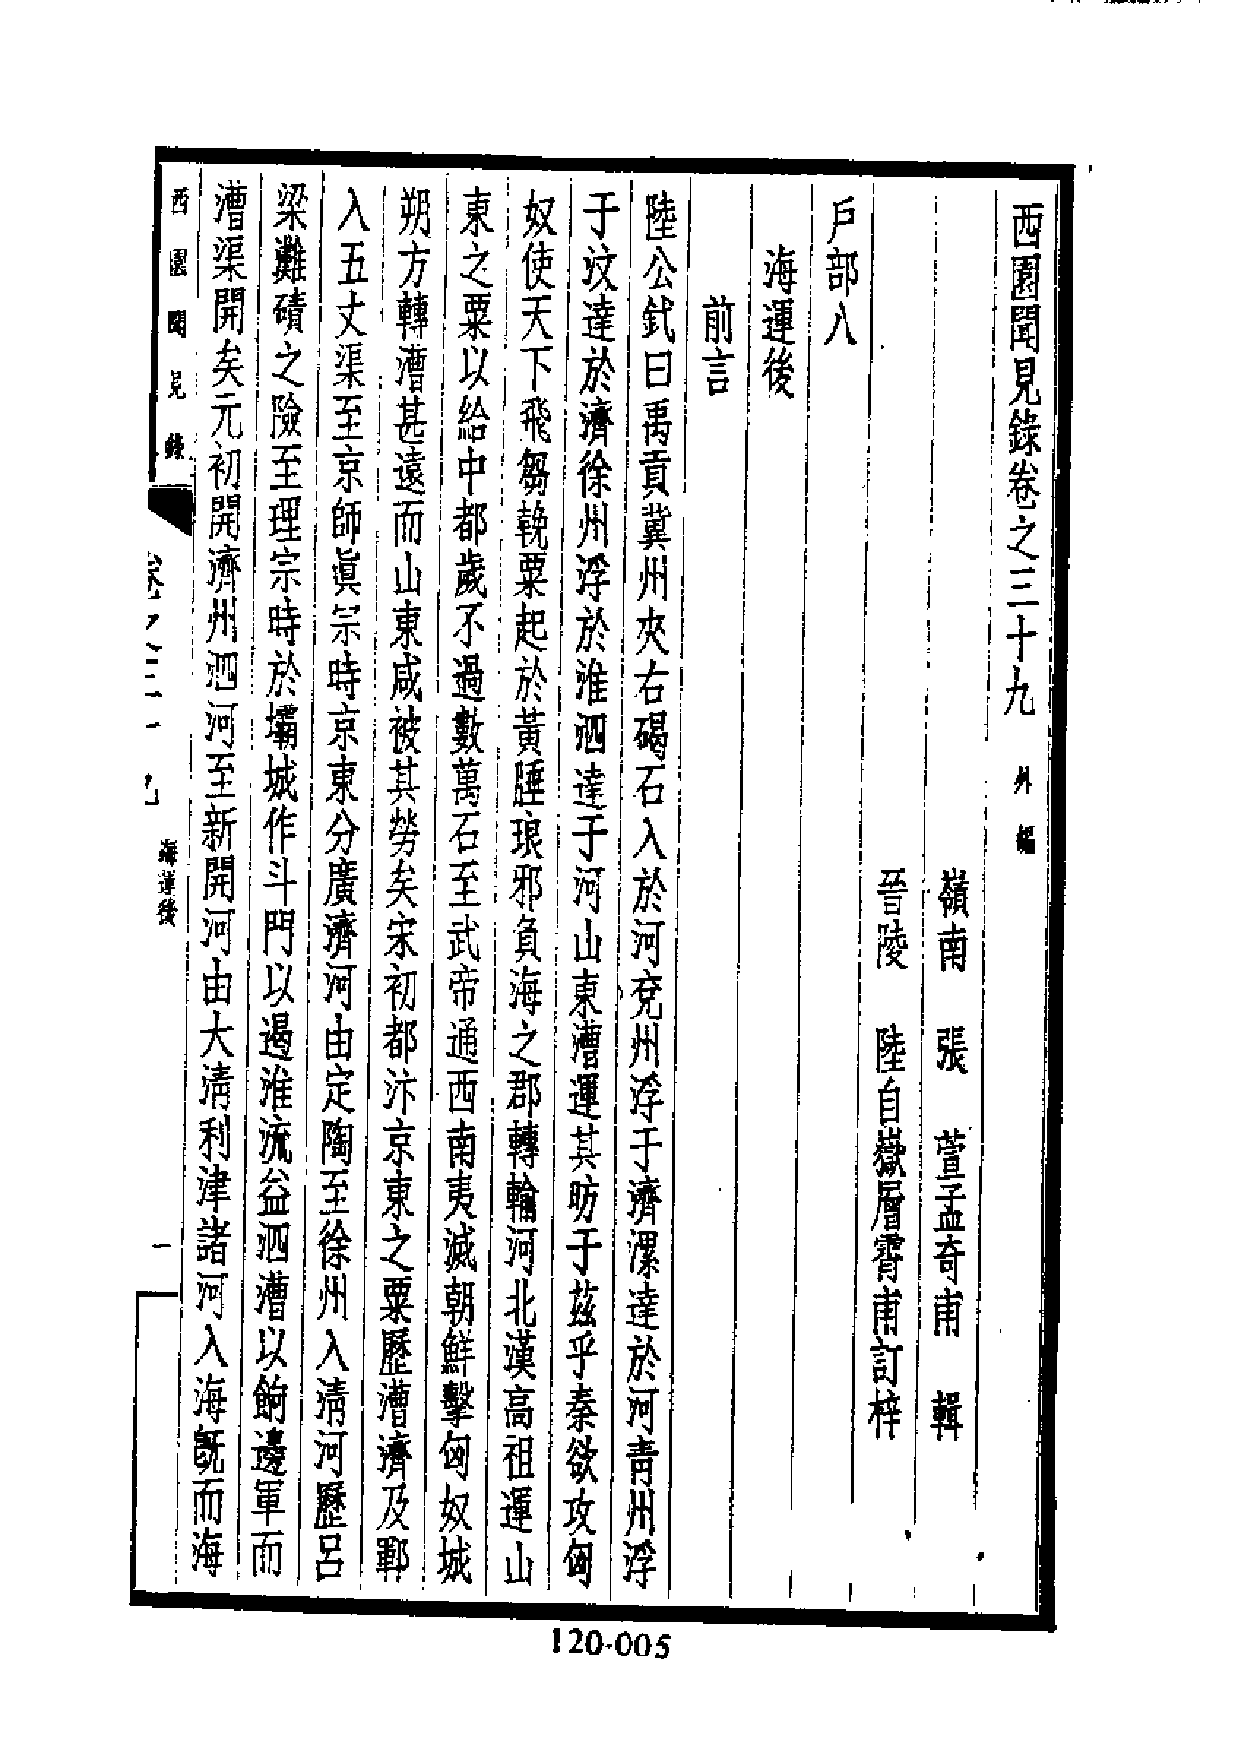 西園聞見錄卷之三十九 外編
嶺南 張 萱孟奇甫 輯
晉陵 陸自嶽層霄甫訂梓
戶部八
海運後
前言
陸公釴曰禹貢冀州夾右碣石入於河兗州浮于濟漯達於河青州浮
于汶達於濟徐州浮於淮泗達于河山東漕運其昉于茲乎秦欲攻匈
奴使天下飛芻輓粟起於黃腄琅邪負海之郡轉輸河北漢高祖運山
東之粟以給中都歲不過數萬石至武帝通西南夷滅朝鮮擊匈奴城
朔方轉漕甚遠而山東咸被其勞矣宋初都汴京東之粟歷漕濟及鄆
入五丈渠至京師眞宗時京東分廣濟河由定陶至徐州入清河歷呂
梁灘磧之險至理宗時於壩城作斗門以遏淮流益泗漕以餉邊軍而
漕渠開矣元初開濟州泗河至新開河由大清利津諸河入海旣而海
西園聞見錄
卷之三十九
海運後
一
120-005